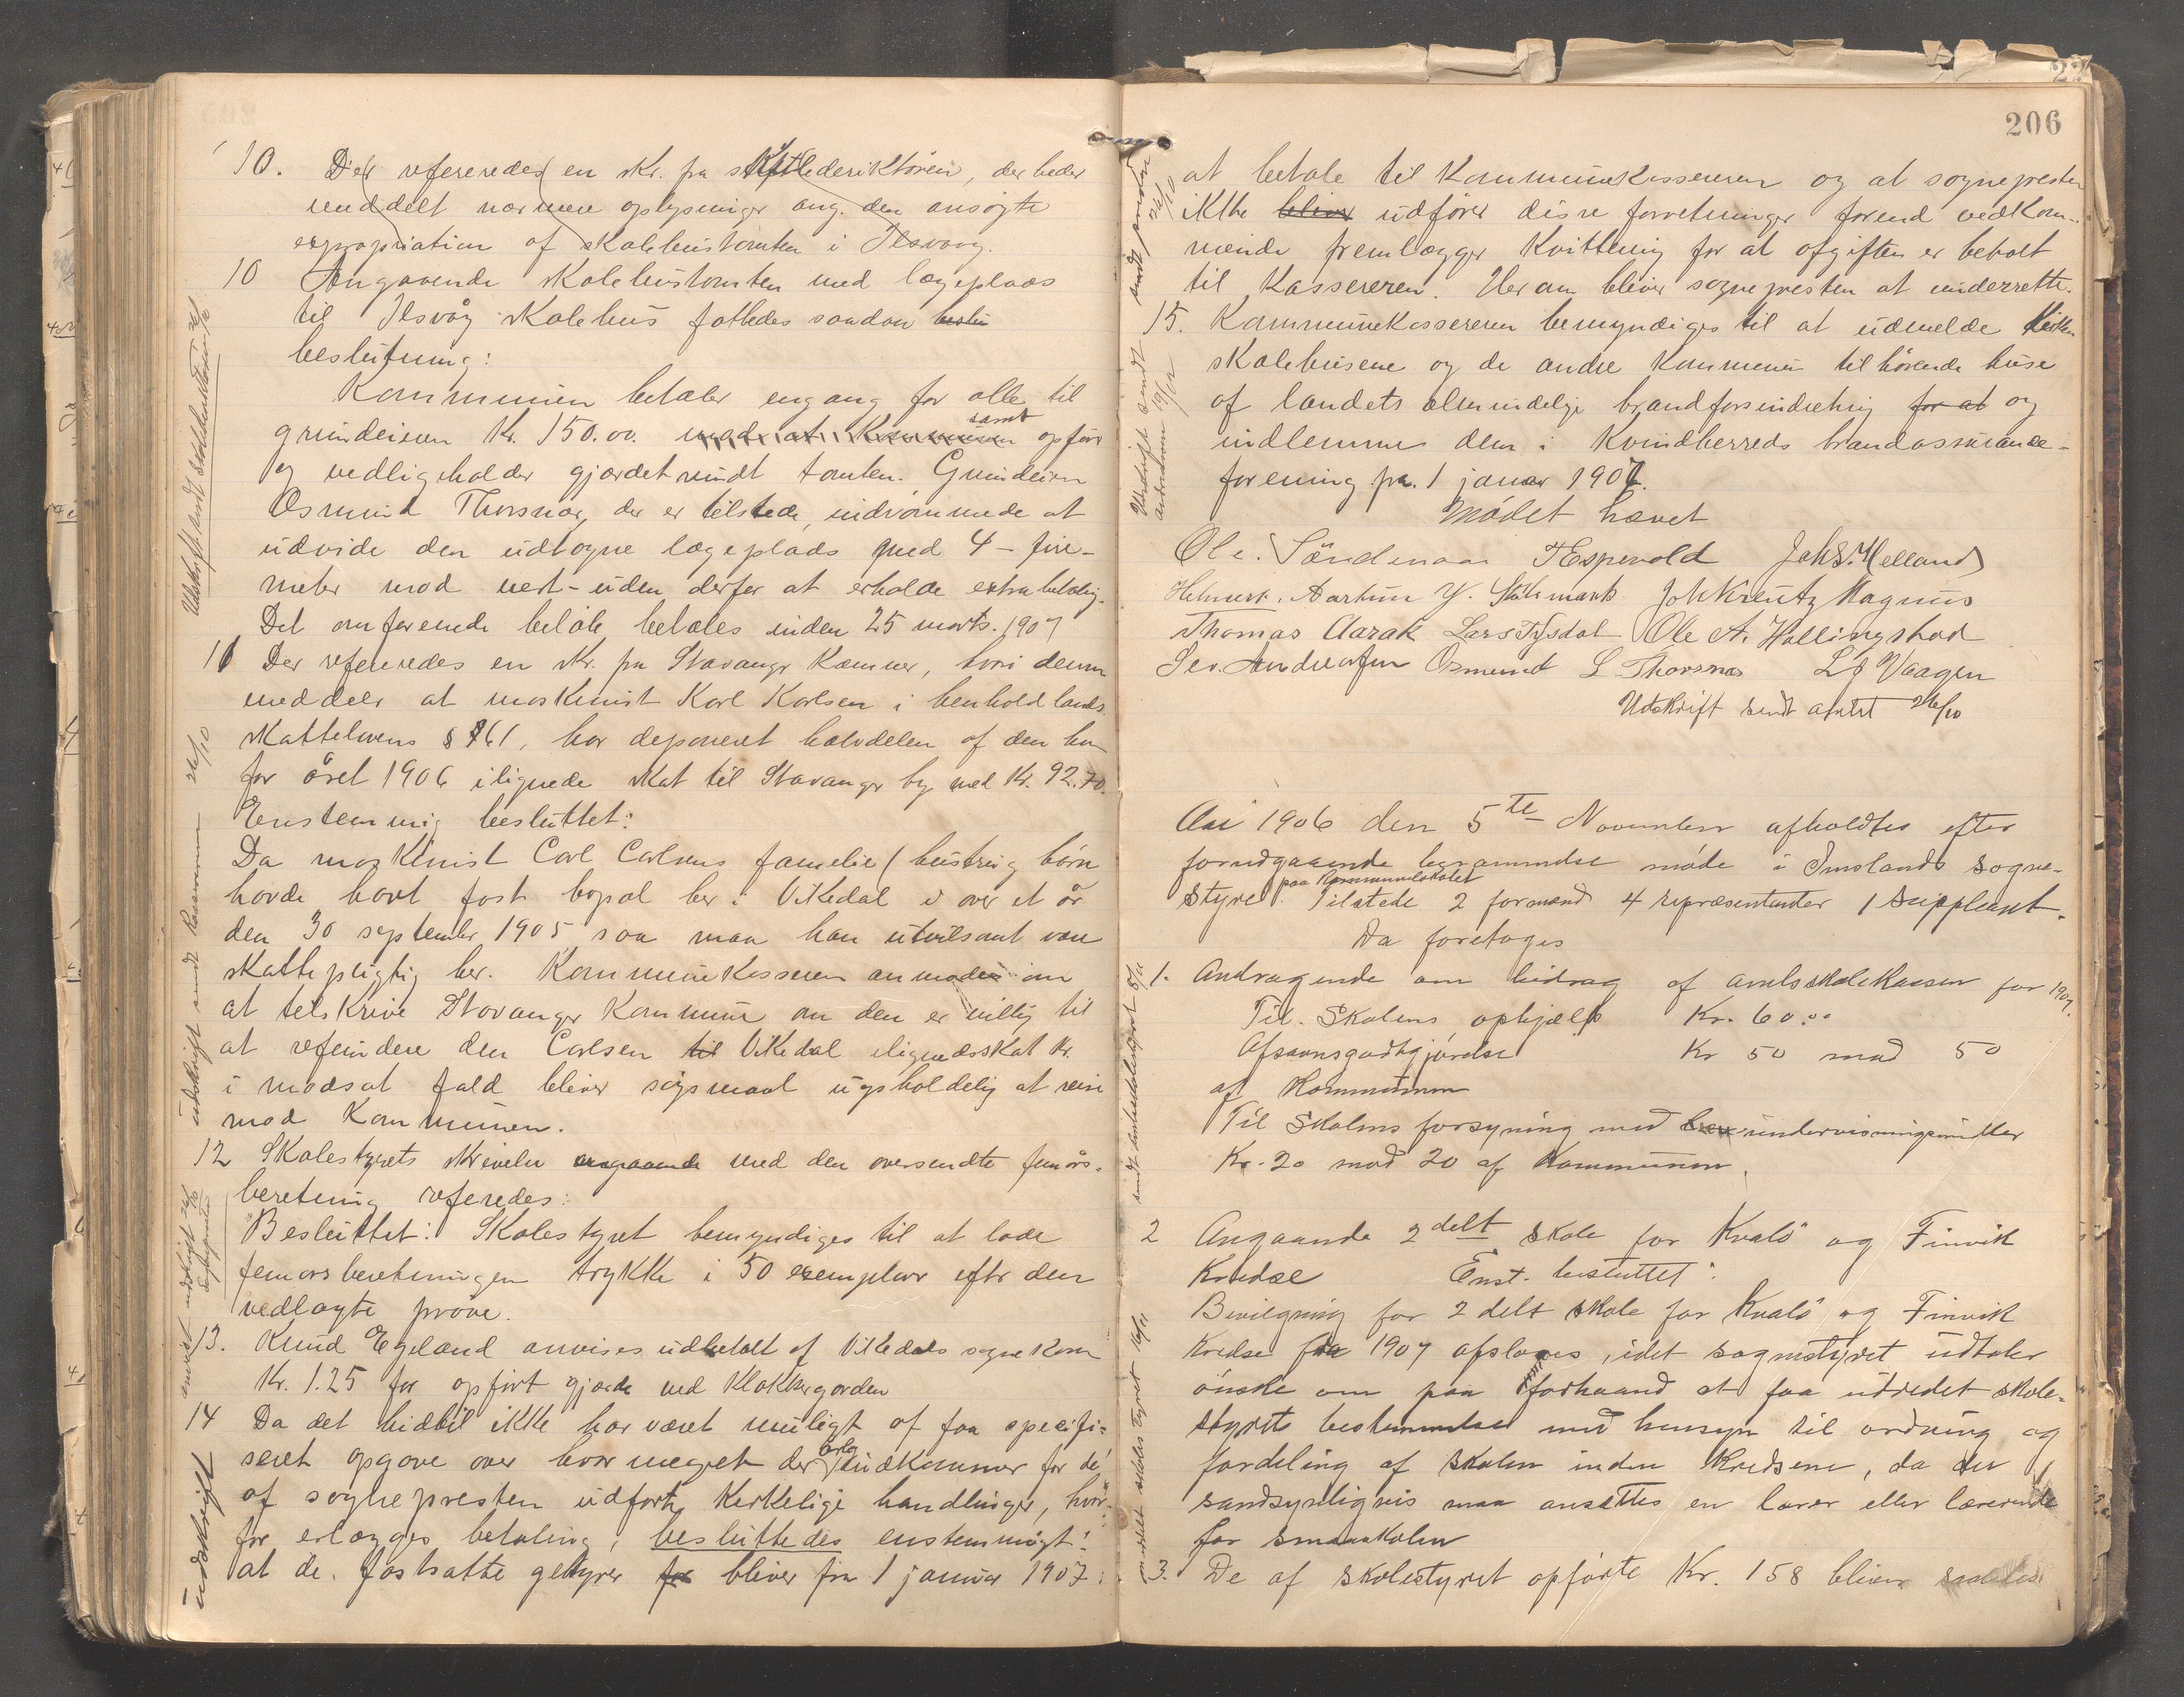 10. Der refereredes en skr. fra skoledirektören, der beder
meddelt nærmere oplysninger ang. den ansøgte
expropriation af skolehustomten i Ilsvaag.
10 Angaaende skolehustomten med lægeplads
til Ilsvåg skolehus fattedes saadan beslu
beslutning:
Kommunen betaler engang for alle til
grundeieren Kr. 150.00. mod at Kommunen samt opfør
og vedligeholder gjærdet rundt tomten. Grundeieren
Osmund Thorsnæs, der er tilstede, indrömmede at
udvide den udtagne lægeplads med 4 - fire -
meter mod vest - uden derfor at erholde extra betaling.
Det omførende beløb betales inden 25 marts. 1907
11 Der refereredes en skr. fra Stavanger Kæmner, hvori denne
meddeler at maskinist Karl Karlsen i henhold lands
skattelovens § 61, har deponeret halvdelen af den ham
for året 1906 ilignede skat til Stavanger by med Kr. 92.70.
Enstemmig besluttet:
Da maskinist Carl Carlsens familie (hustru og børn
havde havt fast bopæl her i Vikedal i over et år
den 30 september 1905 saa maa han utvilsomt være
skattepligtig her. Kommunekassereren anmodes om
at tilskrive Stavanger Kommune om den er villig til
at refundere den Carlsen til Vikedal ilignedeskat Kr.
i modsat fald bliver søgsmaal uopholdelig at reise
mod Kommunen.
12 Skolestyrets skrivelse angaaende med den oversendte femårs-
beretning referedes:
Besluttet: Skolestyret bemyndiges til at lade
femårsberetningen trykke i 50 exemplarer efter den
vedlagte prøve.
13. Knud Egeland anvises udbetalt af Vikedals sognekasse
Kr. 1.25 for opført gjærde ved Klokkergården
14 Da det hidtil ikke har været muligt at faa specifi-
seret opgave over hvor meget der årlig indkommer for de
af sognepresten udførte kirkelige handlinger, hvor-
for erlægges betaling, besluttedes enstemmigt:
at de fastsatte gebyrer for bliver fra 1 januar 1907:
Udskrift sendt skoledirektøren 26/10
udskrift sendt kassereren 26/10
udskrift
206
at betale til Kommunekassereren og at sognepresten
ikke bliver udfører disse forretninger førend vedkom-
mende fremlægger kvittering for at afgiften er betalt
til Kassereren. Herom bliver sognepresten at underrette.
15. Kommunekassereren bemyndiges til at udmelde kirken
skolehusene og de andre Kommunen tilhörende huse
af landets almindelige brandforsindretning for at og
indlemme dem i Kvindherreds brandassurance-
forening fra 1 januar 1907.
Mødet hævet
Ole. Söndenaa T Espevold Johs. Helland
Helmert. Aartun Y. Stöhmark Joh Kreutz Magnus
Thomas Aarak Lars Tysdal Ole A. Hallingstad
Sev. Andreassen Osmund L. Thorsnæs L J Vaagen
Udskrift sendt amtet 26/10
Aar 1906 den 5te November afholdtes efter
forudgaaende berammelse møde i Imslands sogne-
styre paa Kommunelokalet. Tilstede 2 formænd 4 repræsentanter 1 suppleant.
Da foretages
1. Andragende om bidrag af amtsskolekassen for 1907.
Til. Skolens ophjælp Kr. 60.00
Afsavnsgodtgjörelse Kr 50 mod 50
af Kommunen
Til Skolens forsyning med undervisningsmidler
Kr. 20 mod 20 af Kommunen.
2 Angaande 2delt skole for Kvalö og Finvik
Kredse Enst. besluttet:
Bevilgning for 2 delt skole for Kvalö og Finvik
Kredse fra 1907 afslaaes, idet sognestyret udtaler
önske om paa forhaand at faa udredet skole-
styrets bestemmelse med hensyn til ordning og
fordeling af skolen inden Kredsene, da der
sandsynligvis maa ansættes en lærer eller lærerinde
for smaaskolen
3. De af skolestyret opförte Kr. 158 bliver